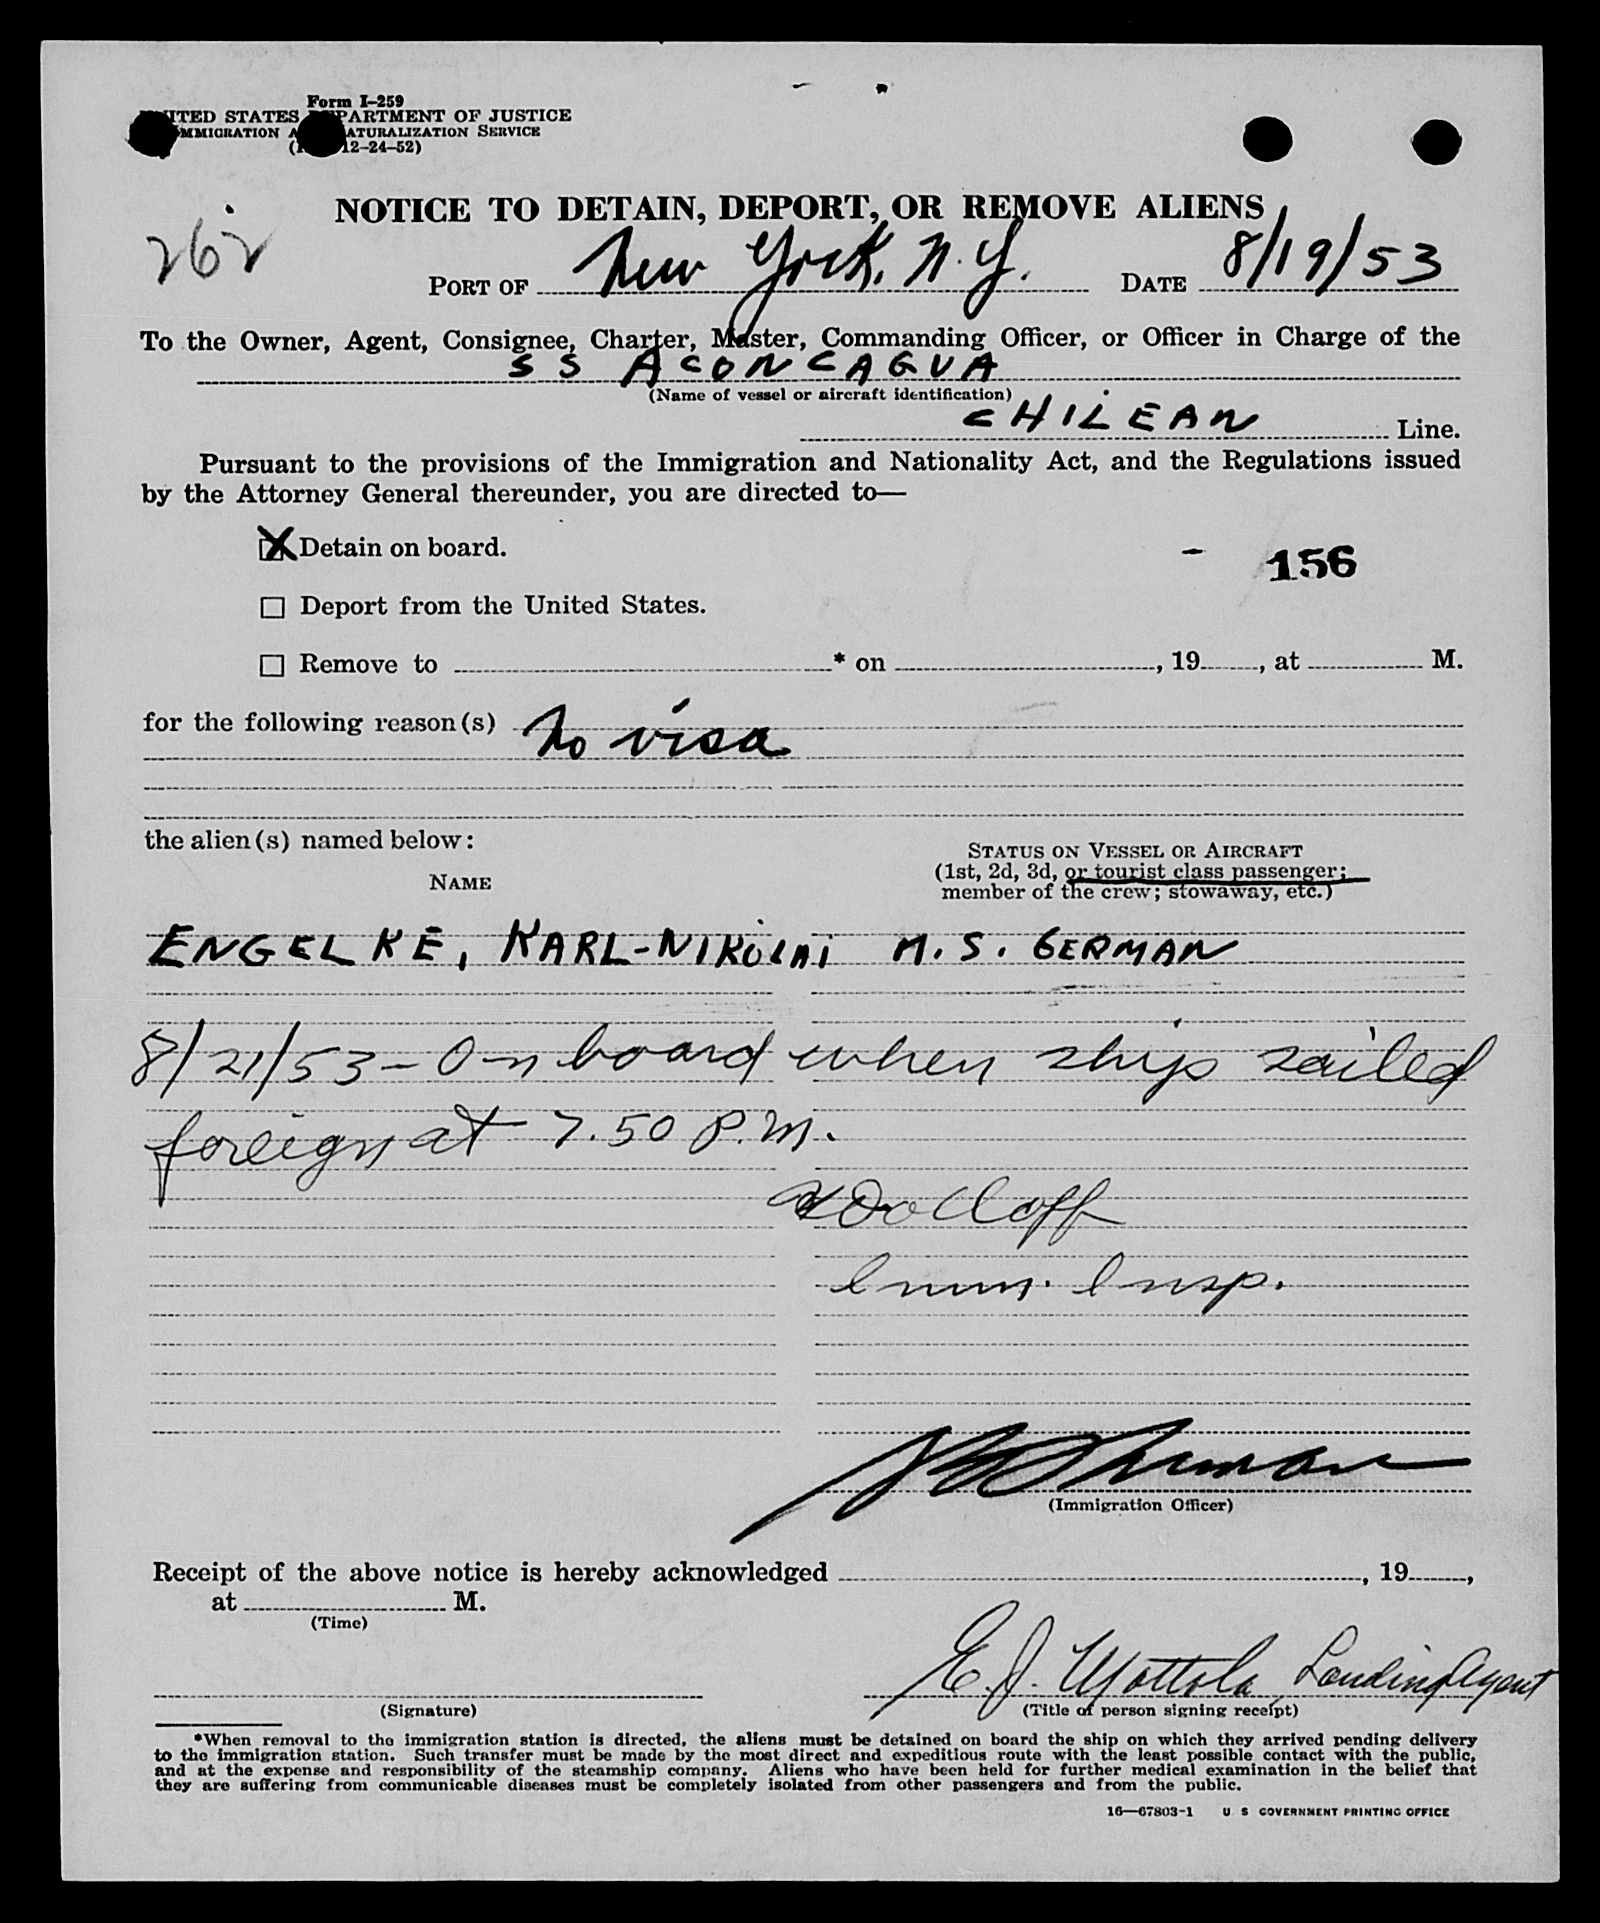 Form I-259
UNITED STATES DEPARTMENT OF JUSTICE
IMMIGRATION AND NATURALIZATION SERVICE
12-24-52)
NOTICE TO DETAIN, DEPORT, OR REMOVE ALIENS
262
PORT OF New York, N.Y. DATE 8/19/53
To the Owner, Agent, Consignee, Charter, Master, Commanding Officer, or Officer in Charge of the
SS ACONCAGUA
(Name of vessel or aircraft identification)
CHILEAN Line.
Pursuant to the provisions of the Immigration and Nationality Act, and the Regulations issued
by the Attorney General thereunder, you are directed to—
X Detain on board.
- 156
☐ Deport from the United States.
☐ Remove to * on , 19 , at M.
for the following reason(s) No visa
the alien(s) named below:
STATUS ON VESSEL OR AIRCRAFT
(1st, 2d, 3d, or tourist class passenger;
NAME
member of the crew; stowaway, etc.)
ENGELKE, KARL-NIKOLAI M.S. GERMAN
8/21/53 - On board when ship sailed
foreign at 7.50 P.M.
Imm. Insp.
(Immigration Officer)
Receipt of the above notice is hereby acknowledged , 19 ,
at M.
(Time)
E. J. Mottola, Landing Agent
(Signature) (Title of person signing receipt)
*When removal to the immigration station is directed, the aliens must be detained on board the ship on which they arrived pending delivery
to the immigration station. Such transfer must be made by the most direct and expeditious route with the least possible contact with the public,
and at the expense and responsibility of the steamship company. Aliens who have been held for further medical examination in the belief that
they are suffering from communicable diseases must be completely isolated from other passengers and from the public.
16—67803-1 U S GOVERNMENT PRINTING OFFICE